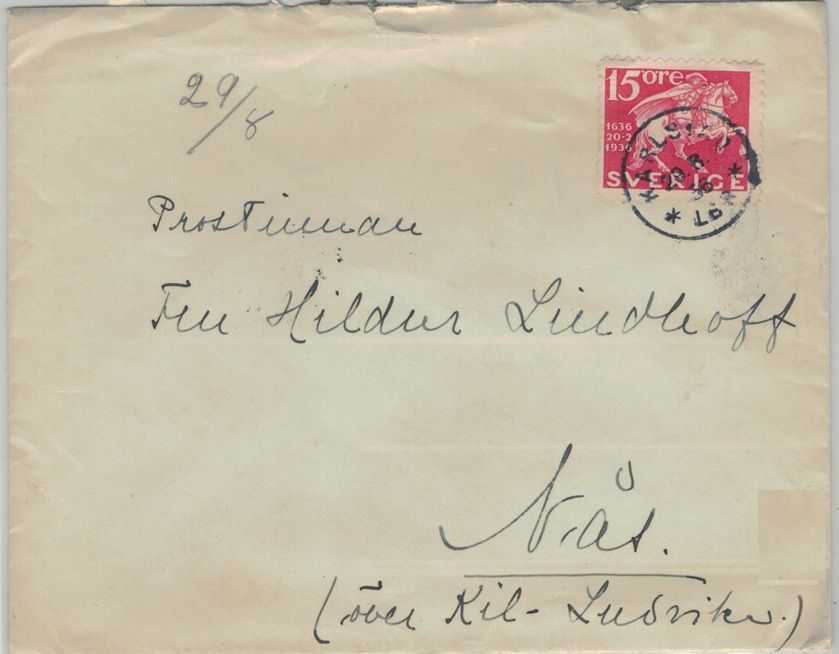 29/8
15 öre
1636
20·2
1936
SVERIGE
KARLSTAD
29.8.
36
* LBR *
Prostinnan
Fru Hildur Lindhoff
Nås.
(över Kil-Ludvika.)